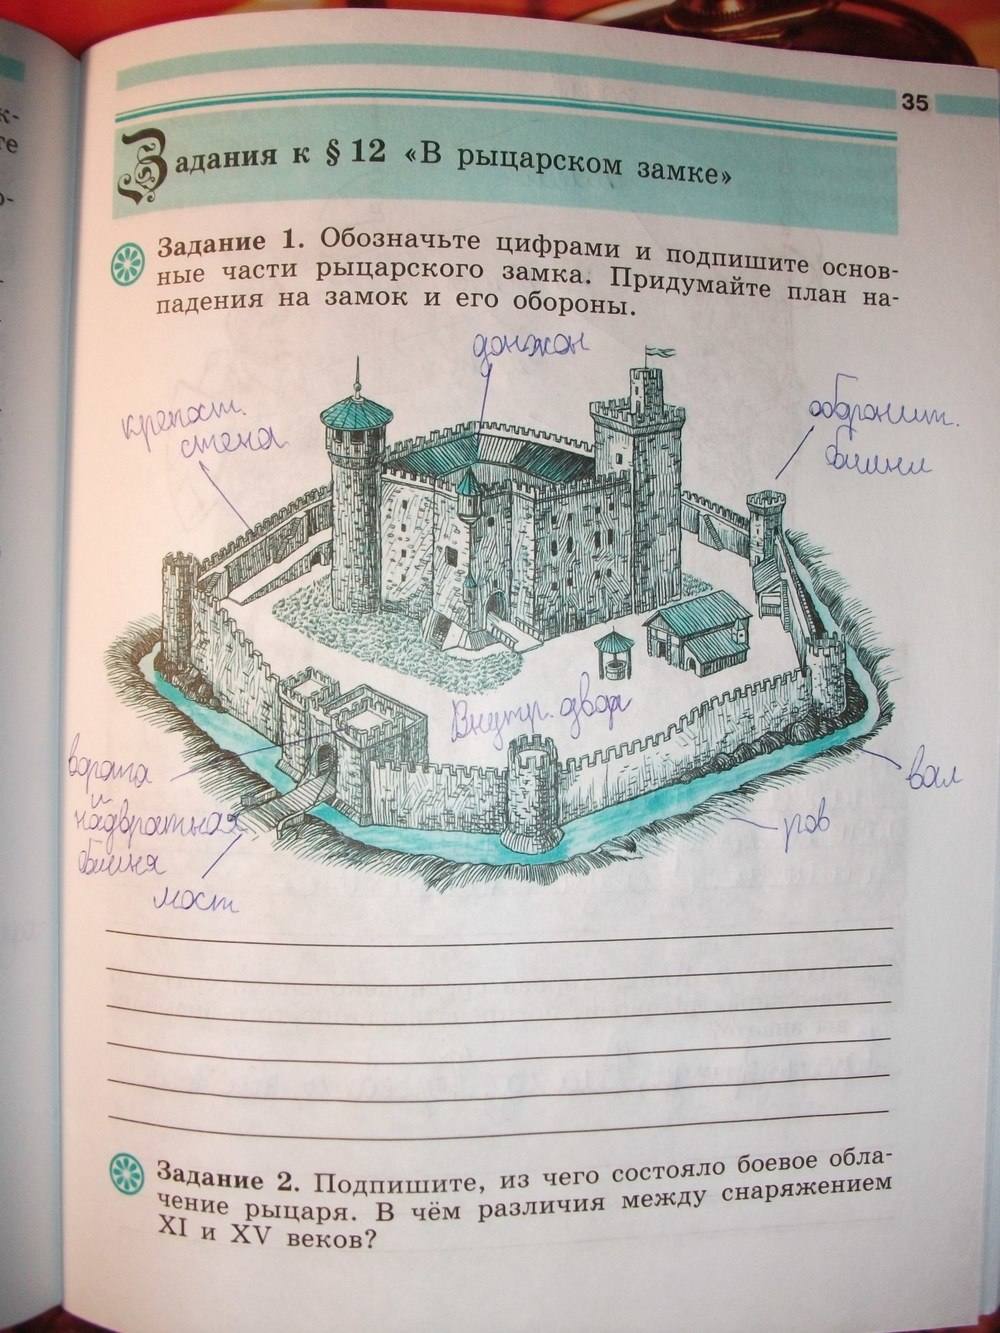 35
Задания к § 12 «В рыцарском замке»
Задание 1. Обозначьте цифрами и подпишите основ-
ные части рыцарского замка. Придумайте план на-
падения на замок и его обороны.
донжон
крепост.
стена
оборонит.
башни
Внутр. двор
ворота
и
надвратная
башня
мост
ров
вал
Задание 2. Подпишите, из чего состояло боевое обла-
чение рыцаря. В чём различия между снаряжением
XI и XV веков?